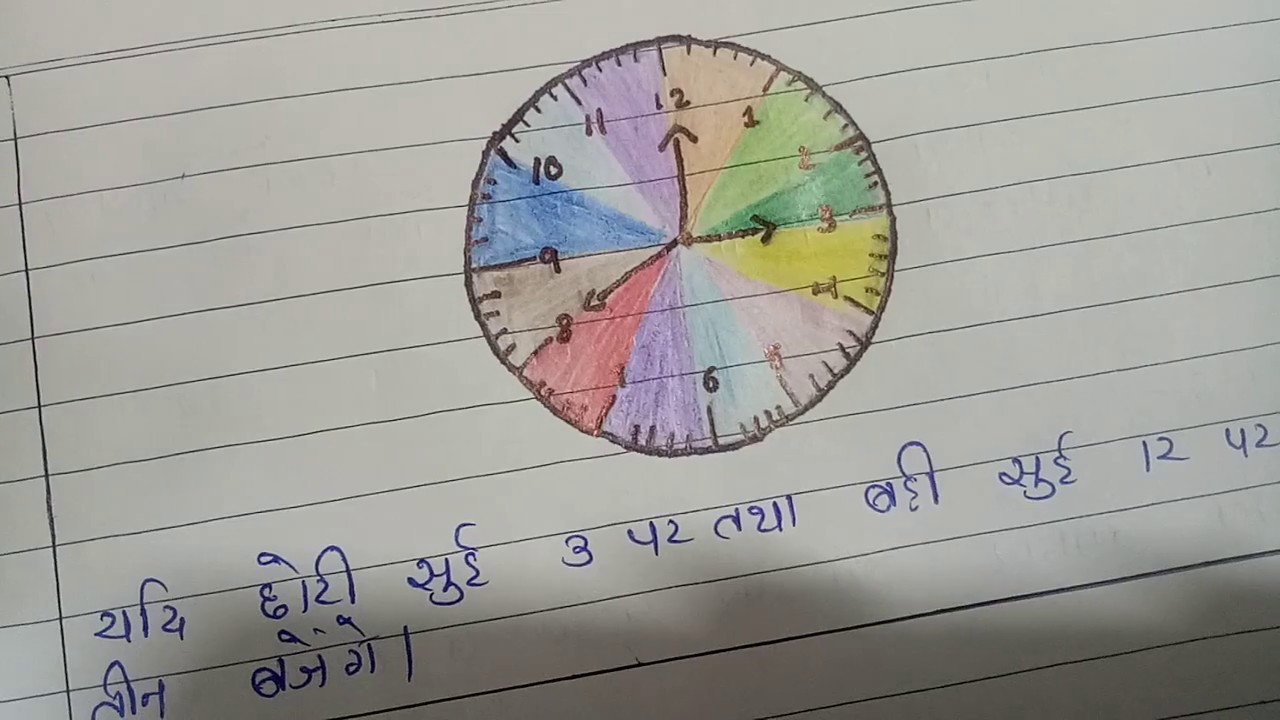 12
11
1
10
2
9
3
8
4
7
5
6
यदि छोटी सुई 3 पर तथा बड़ी सुई 12 पर
तीन बजेंगे।